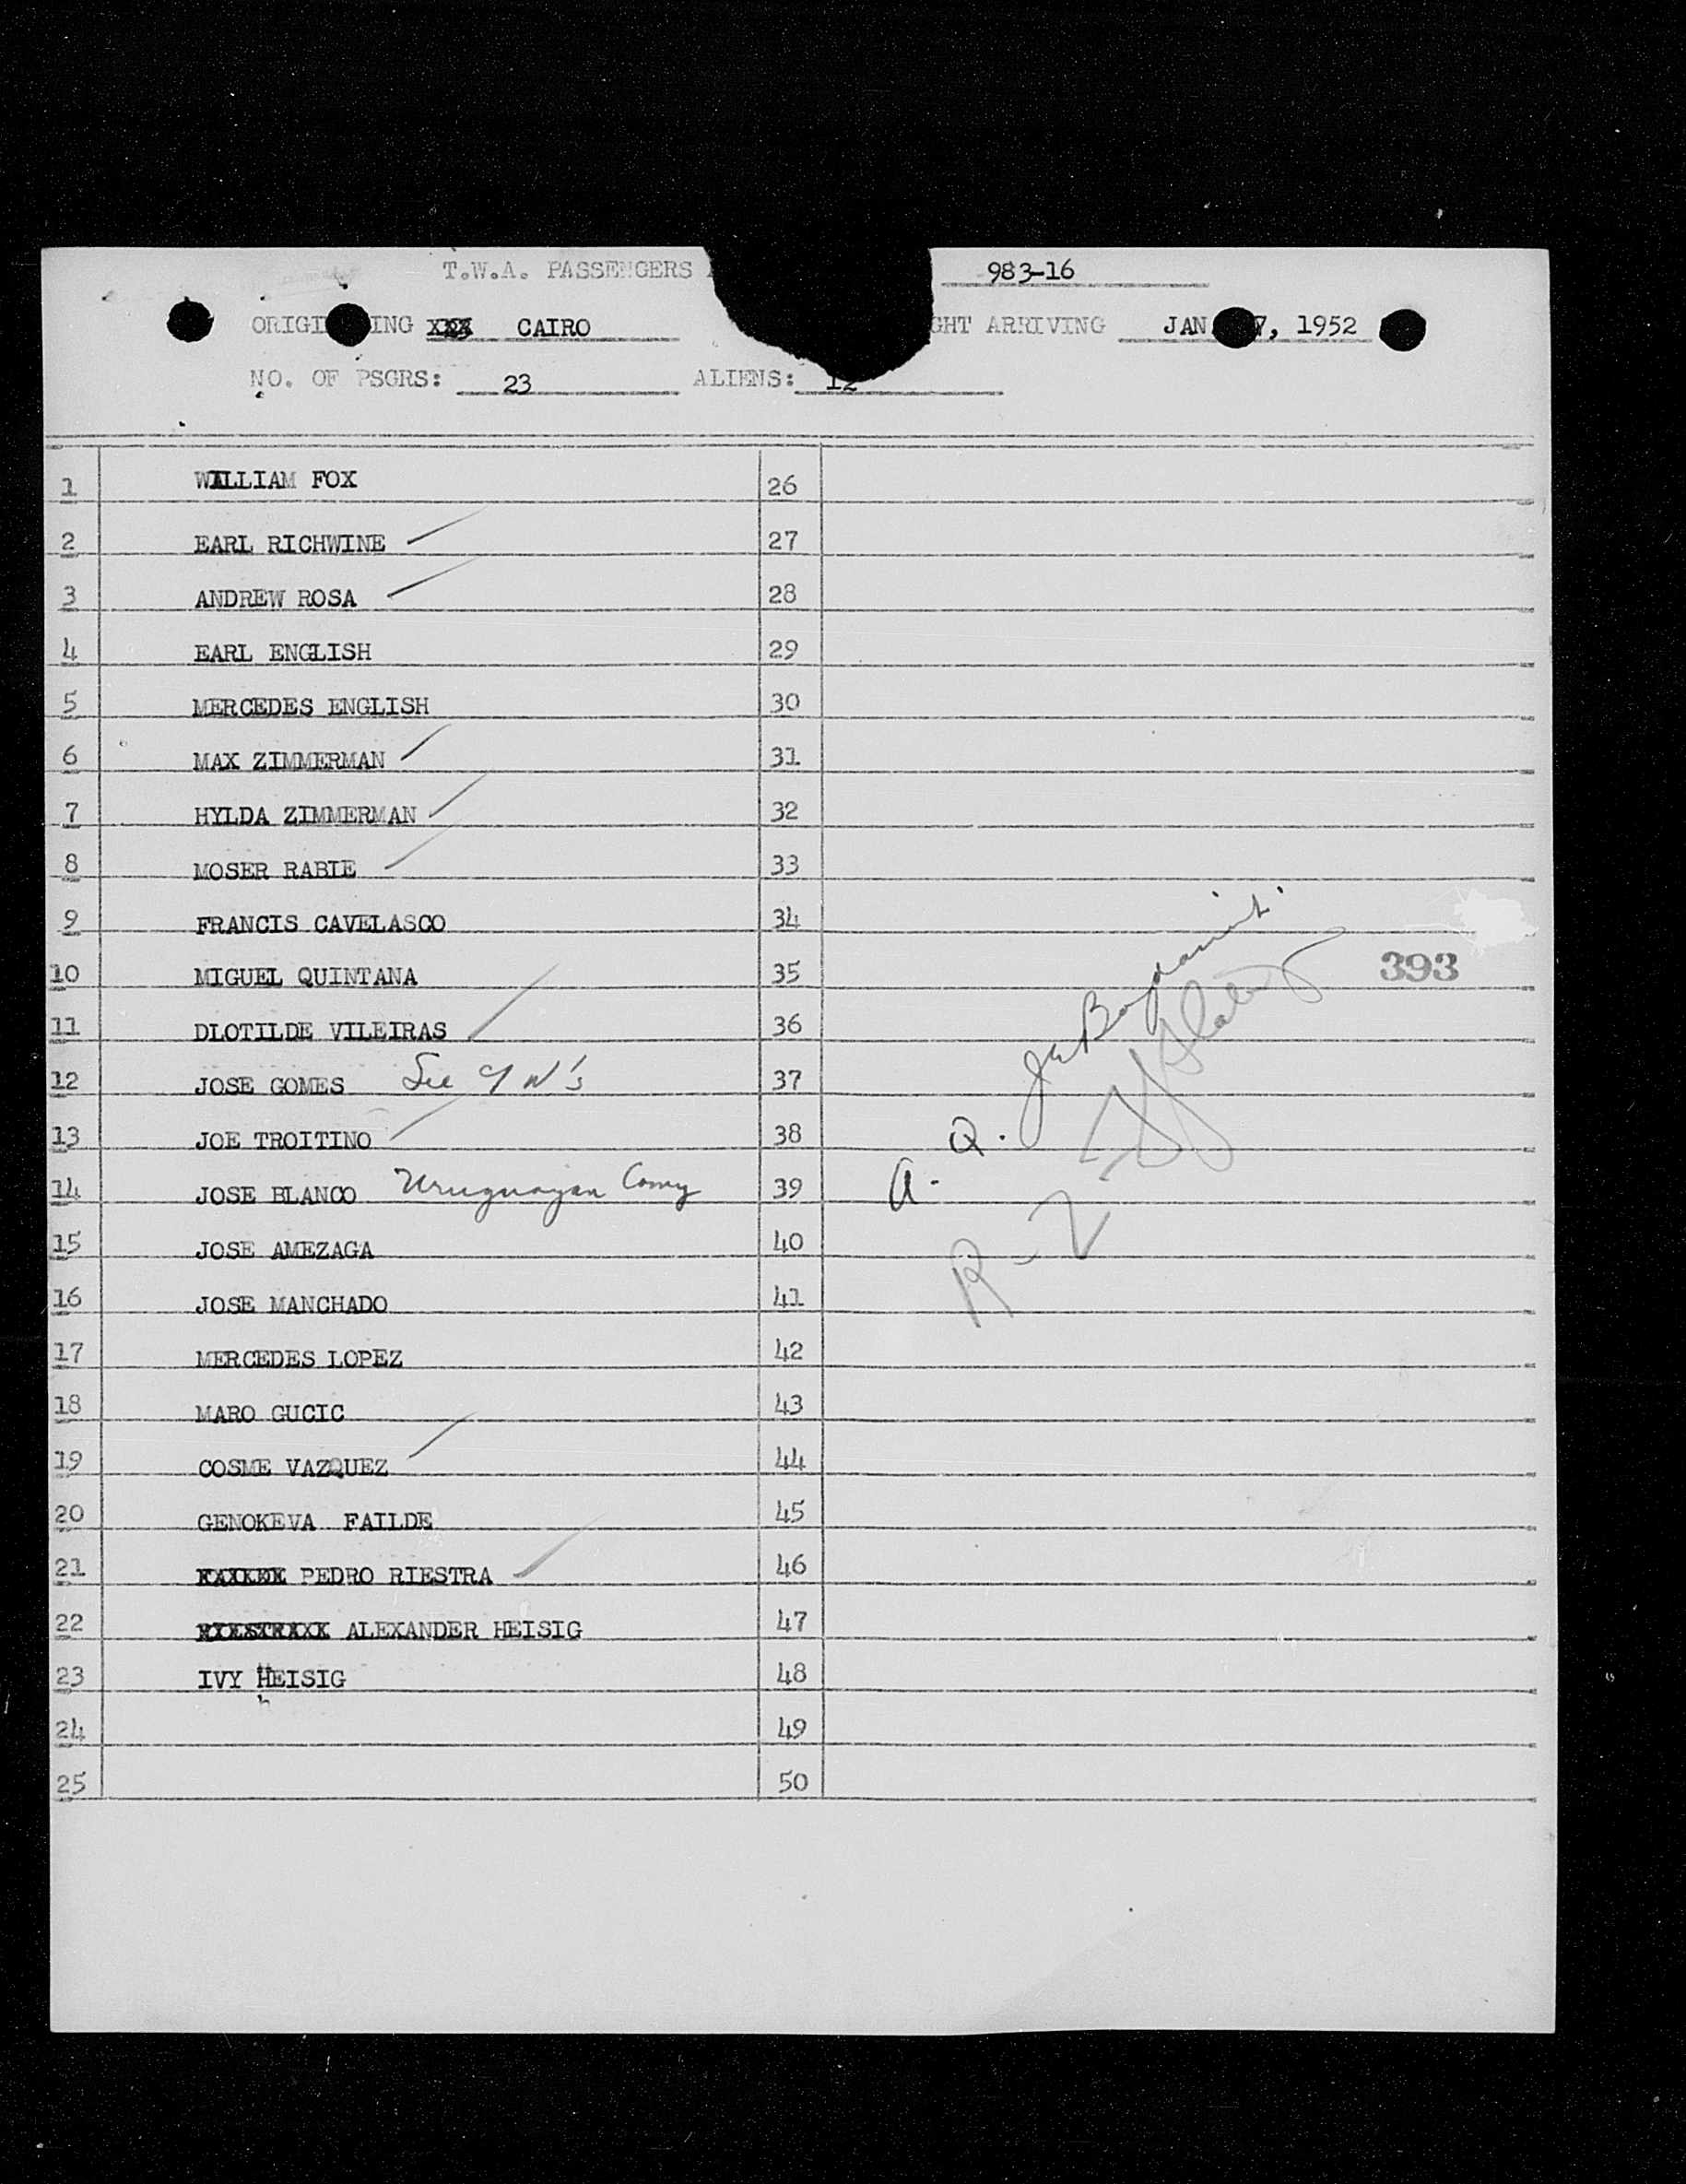 T.W.A. PASSENGERS 983-16
ORIGI ING XXX CAIRO GHT ARRIVING JAN 7, 1952
NO. OF PSGRS: 23 ALIENS: 12
1 WILLIAM FOX 26
2 EARL RICHWINE 27
3 ANDREW ROSA 28
4 EARL ENGLISH 29
5 MERCEDES ENGLISH 30
6 MAX ZIMMERMAN 31
7 HYLDA ZIMMERMAN 32
8 MOSER RABIE 33
9 FRANCIS CAVELASCO 34
10 MIGUEL QUINTANA 35 393
11 DLOTILDE VILEIRAS 36
12 JOSE GOMES See 9 N's 37
13 JOE TROITINO 38
14 JOSE BLANCO Uruguayan 39
15 JOSE AMEZAGA 40
16 JOSE MANCHADO 41
17 MERCEDES LOPEZ 42
18 MARO GUCIC 43
19 COSME VAZQUEZ 44
20 GENOKEVA FAILDE 45
21 PEDRO RIESTRA 46
22 ALEXANDER HEISIG 47
23 IVY HEISIG 48
24 49
25 50
A. Q.
R-2